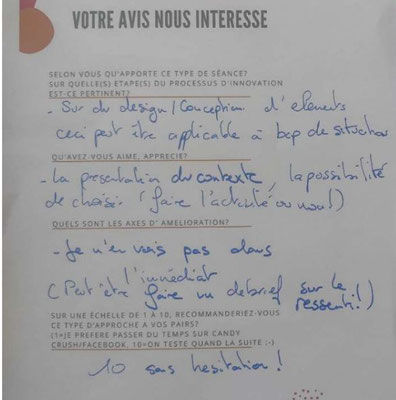 VOTRE AVIS NOUS INTERESSE
SELON VOUS QU'APPORTE CE TYPE DE SÉANCE?
SUR QUELLE(S) ETAPE(S) DU PROCESSUS D'INNOVATION
EST-CE PERTINENT?
- Sur du design/Conception d'elements
ceci peut être applicable à bcp de situation
QU'AVEZ VOUS AIME, APPRECIE?
- la presentation du contexte, la possibilité
de choisir (faire l'activité ou non!)
QUELS SONT LES AXES D'AMELIORATION?
- Je n'en vois pas dans
l'immédiat
(Peut être faire un debrief sur le
ressenti!)
SUR UNE ÉCHELLE DE 1 À 10, RECOMMANDERIEZ-VOUS
CE TYPE D'APPROCHE A VOS PAIRS?
(1=JE PREFERE PASSER DU TEMPS SUR CANDY
CRUSH/FACEBOOK, 10=ON TESTE QUAND LA SUITE ;-)
10 sans hesitation!